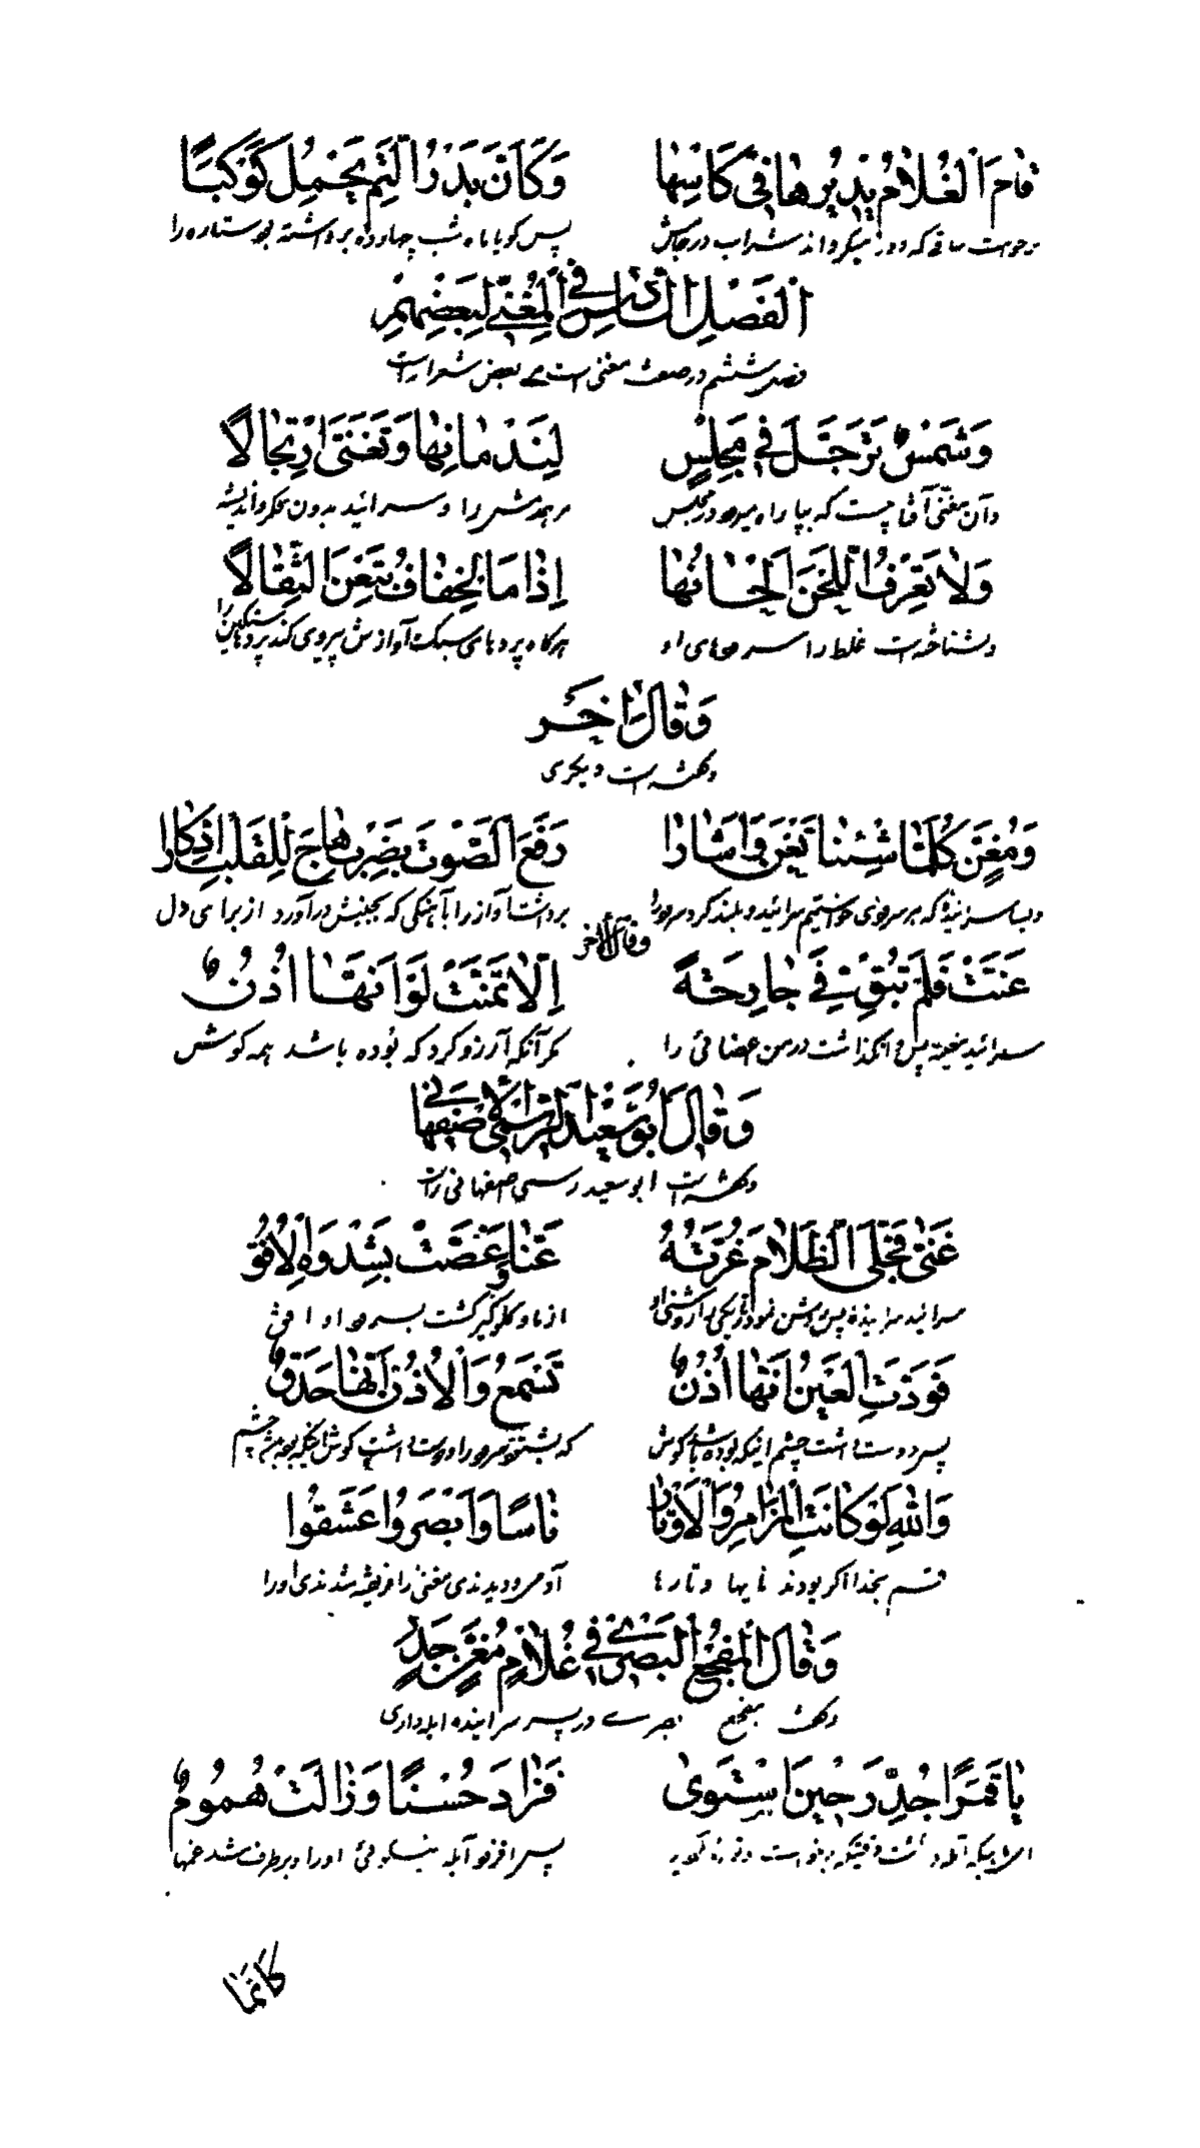 قامَ الغُلامُ يُديرُها في كَأسِها وَكَأَنَّ بَدرُ التَّمِّ يَحمِلُ كَوكَبًا
که دور میگرداند شراب در پس گویا ماه شب چهارده برداشته بود ستاره را
الفَصلِ السّادِسِ في المُغَنّي لِبَعضِهِم
فصل ششم در صفت مغنی است بعض شعرا راست
وَشَمسٌ تَرَجَّلَ في مَجلِسٍ لِنَدمانِها وَتَغَنّى ارتِجالًا
وآن مغنی آفتابیست که پیاده میرود در مجلس و سرائید بدون فکر و اندیشه
وَلا تَعرِفُ اللَّحنَ أَلحانُها إِذا ما الخِفافُ تَبِعنَ الثِّقالا
و نشناخته است غلط را سرودهای او هرگاه پردهای سبک آوازش پیروی کند پردهای سنگین را
وَقالَ آخَر
وگفته است دیگری
وَمُغَنٍّ كُلَّما شِئنا تَغَنّى وَأَشارا رَفَعَ الصَّوتَ بِضَربٍ هاجَ لِلقَلبِ ادِّكارا
که هر سرودی خواستیم سرائید و بلند کرد برداشت آواز را بآهنگی که بجنبش درآورد از برای دل
وقال الآخر
غَنَّت فَلَم تُبقِ فيَّ جارِحَةً إِلّا تَمَنَّت لَو أَنَّها أُذُنُ
سرائید مغنیه پس وانگذاشت در من اعضائی را مگر آنکه آرزو کرد که بوده باشد همه گوش
وَقالَ أَبو سَعيدٍ الرُّستَمي الإِصفَهاني
وگفته است ابو سعید رستمی اصفهانی
غَنّى فَجَلّى الظَّلامَ غُرَّتُهُ عَنّا وَغَصَّت بِشَدوِهِ الأُفُقُ
از ما و گلوگیر گشت بسرود او افق
فَوَدَّتِ العَينُ أَنَّها أُذُنٌ تَسمَعُ وَالأُذنُ أَنَّها حَدَقٌ
پس دوست داشت چشم اینکه بوده باشد گوش که بشنود سرود را و دوست داشت گوش اینکه بوده باشد چشم
وَاللهِ لَو كانَتِ المَزامِرُ وَالأَوتارُ ناسًا وَأَبصَروا عَشَقوا
قسم بخدا اگر بودند نایها و تارها آدم و دیدندی مغنی را فریفته شدندی او را
وَقالَ المُفَجَّعُ البَصري في غُلامٍ مُغَنٍّ جَدِرٍ
وگفت مفجع بصری در پسر سراینده ابله داری
يا قَمَرًا جُدِّرَ حينَ استَوى فَزادَ حُسنًا وَزالَت هُمومُ
پس افزود آبله نیکوئی او را و برطرف شد غمها
كَأَنَّما